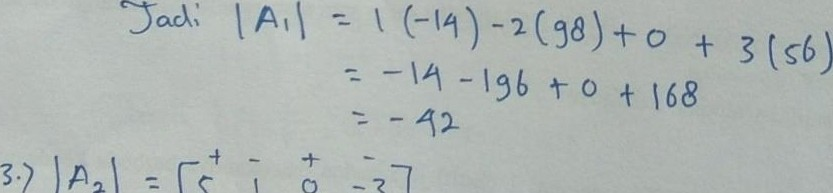 Jadi |A₁| = 1 (-14) - 2(98) + 0 + 3(56)
= -14 - 196 + 0 + 168
= - 42
+ - + -
3.) |A₂| = [5 1 0 -3]